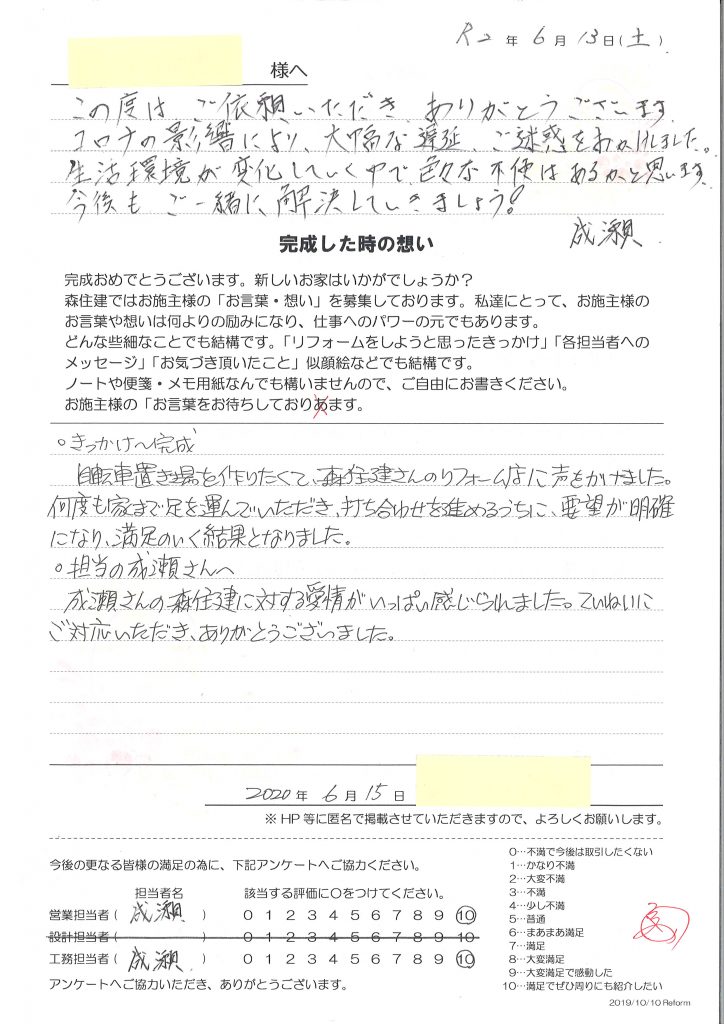 R2 年 6 月 13 日(土).
様へ
この度は ご依頼いただき、ありがとうございます.
コロナの影響により、大幅な遅延、ご迷惑をおかけしました。
生活環境が変化していく中で、色々な不便はあるかと思います.
今後も ご一緒に、解決していきましょう!
成瀬.
完成した時の想い
完成おめでとうございます。新しいお家はいかがでしょうか？
森住建ではお施主様の「お言葉・想い」を募集しております。私達にとって、お施主様の
お言葉や想いは何よりの励みになり、仕事へのパワーの元でもあります。
どんな些細なことでも結構です。「リフォームをしようと思ったきっかけ」「各担当者への
メッセージ」「お気づき頂いたこと」似顔絵などでも結構です。
ノートや便箋・メモ用紙なんでも構いませんので、ご自由にお書きください。
お施主様の「お言葉をお待ちしておりあます。
○きっかけ～完成
自転車置き場を作りたくて、森住建さんのリフォーム店に声をかけました。
何度も家まで足を運んでいただき、打ち合わせを進めるうちに、要望が明確
になり、満足のいく結果となりました。
○担当の成瀬さんへ
成瀬さんの森住建に対する愛情がいっぱい感じられました。ていねいに
ご対応いただき、ありがとうございました。
2020 年 6 月 15 日
※ HP 等に匿名で掲載させていただきますので、よろしくお願いします。
今後の更なる皆様の満足の為に、下記アンケートへご協力ください。
担当者名 該当する評価に○をつけてください。
営業担当者( 成瀬 ) 0 1 2 3 4 5 6 7 8 9 10
設計担当者( ) 0 1 2 3 4 5 6 7 8 9 10
工務担当者( 成瀬 ) 0 1 2 3 4 5 6 7 8 9 10
アンケートへご協力いただき、ありがとうございます。
0…不満で今後は取引したくない
1…かなり不満
2…大変不満
3…不満
4…少し不満
5…普通
6…まあまあ満足
7…満足
8…大変満足
9…大変満足で感動した
10…満足でぜひ周りにも紹介したい
2019/10/10 Reform